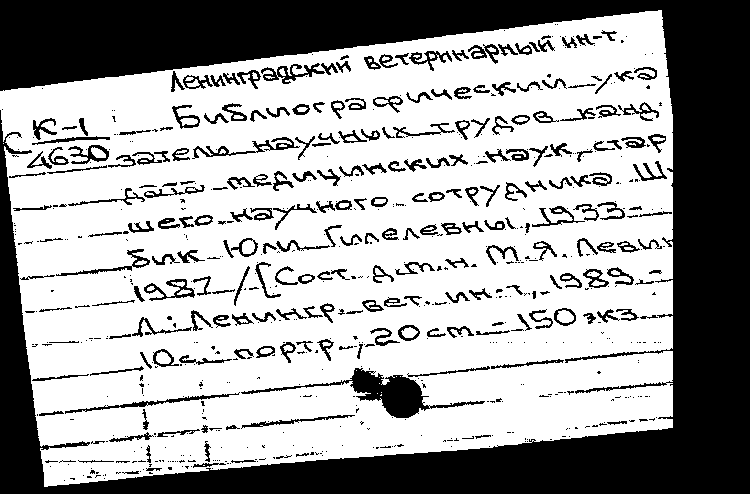 Ленинградский ветеринарный ин-т.
С К-1 Библиографический ука
4630 затель научных трудов канд
дата медицинских наук, стар
шего научного сотрудника Шу
бик Юли Гилелевны, 1933-
1987 / [Сост. д.м.н. М.Я. Левин
Л.: Ленингр. вет. ин-т, 1989. -
10с.: портр.; 20 cm. - 150 экз.